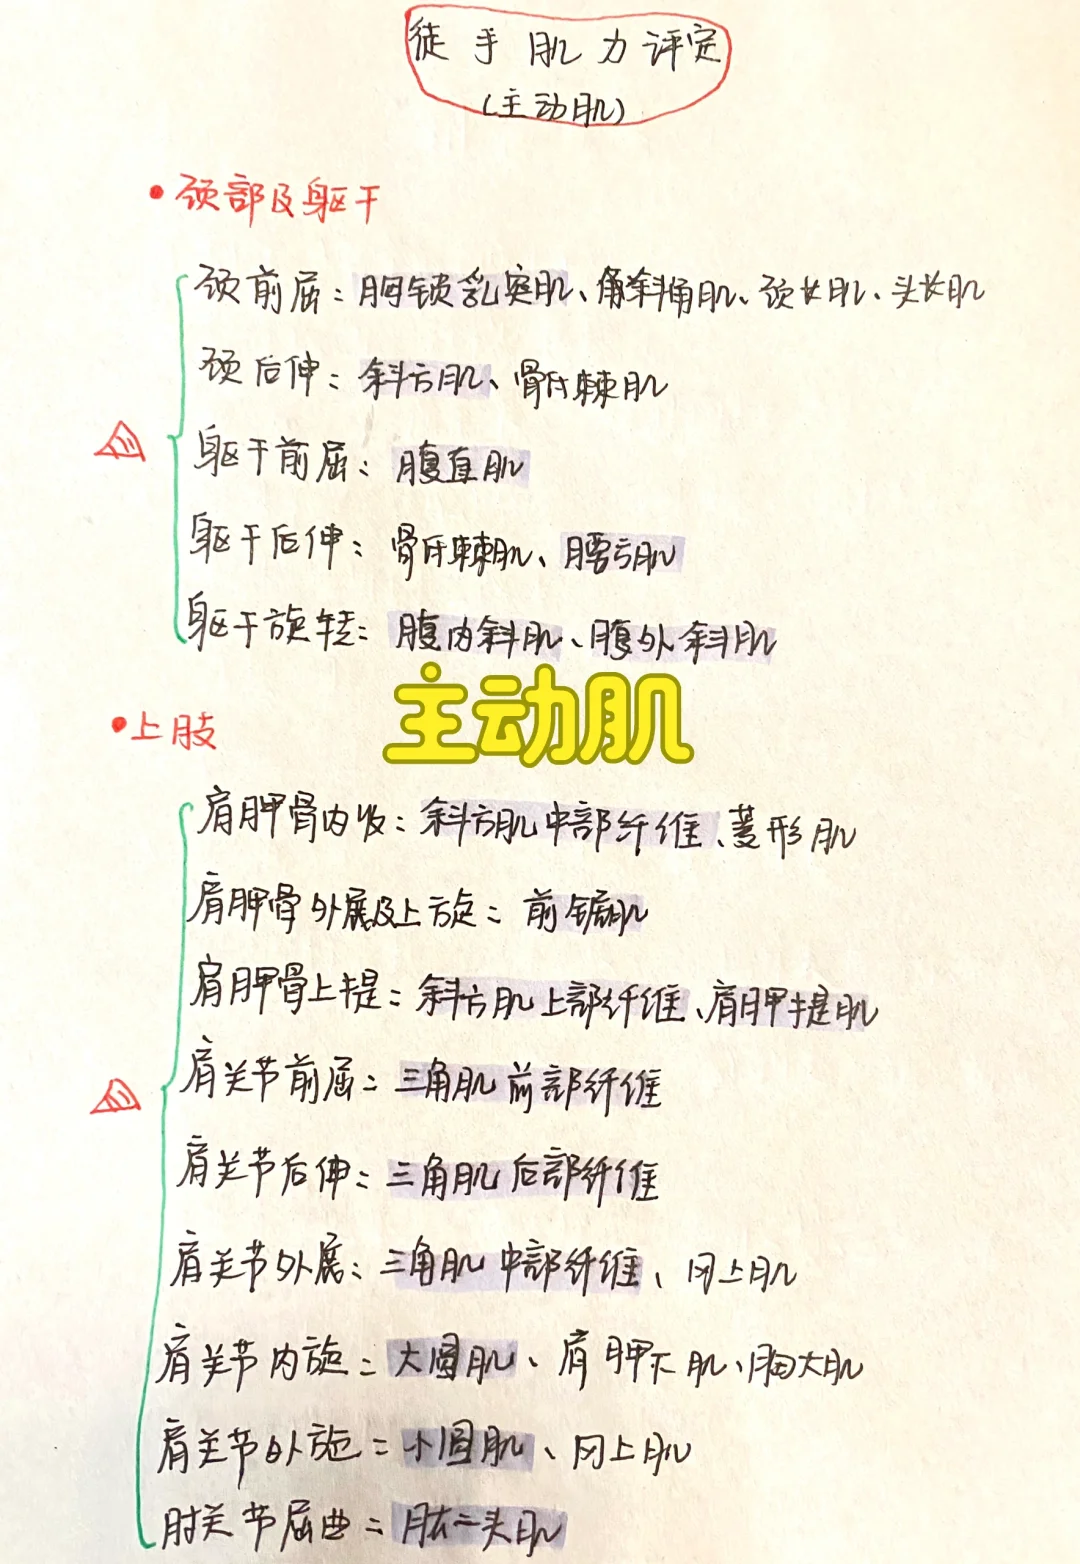 徒手肌力评定
(主动肌)
•颈部及躯干
颈前屈：胸锁乳突肌、角斜角肌、颈长肌、头长肌
颈后伸：斜方肌、骨氏棘肌
躯干前屈：腹直肌
躯干后伸：骨氏棘肌、腰方肌
躯干旋转：腹内斜肌、腹外斜肌
主动肌
•上肢
肩胛骨内收：斜方肌中部纤维、菱形肌
肩胛骨外展及上旋：前锯肌
肩胛骨上提：斜方肌上部纤维、肩胛提肌
肩关节前屈：三角肌前部纤维
肩关节后伸：三角肌后部纤维
肩关节外展：三角肌中部纤维、冈上肌
肩关节内旋：大圆肌、肩胛下肌、胸大肌
肩关节外旋：小圆肌、冈上肌
肘关节屈曲：肱二头肌